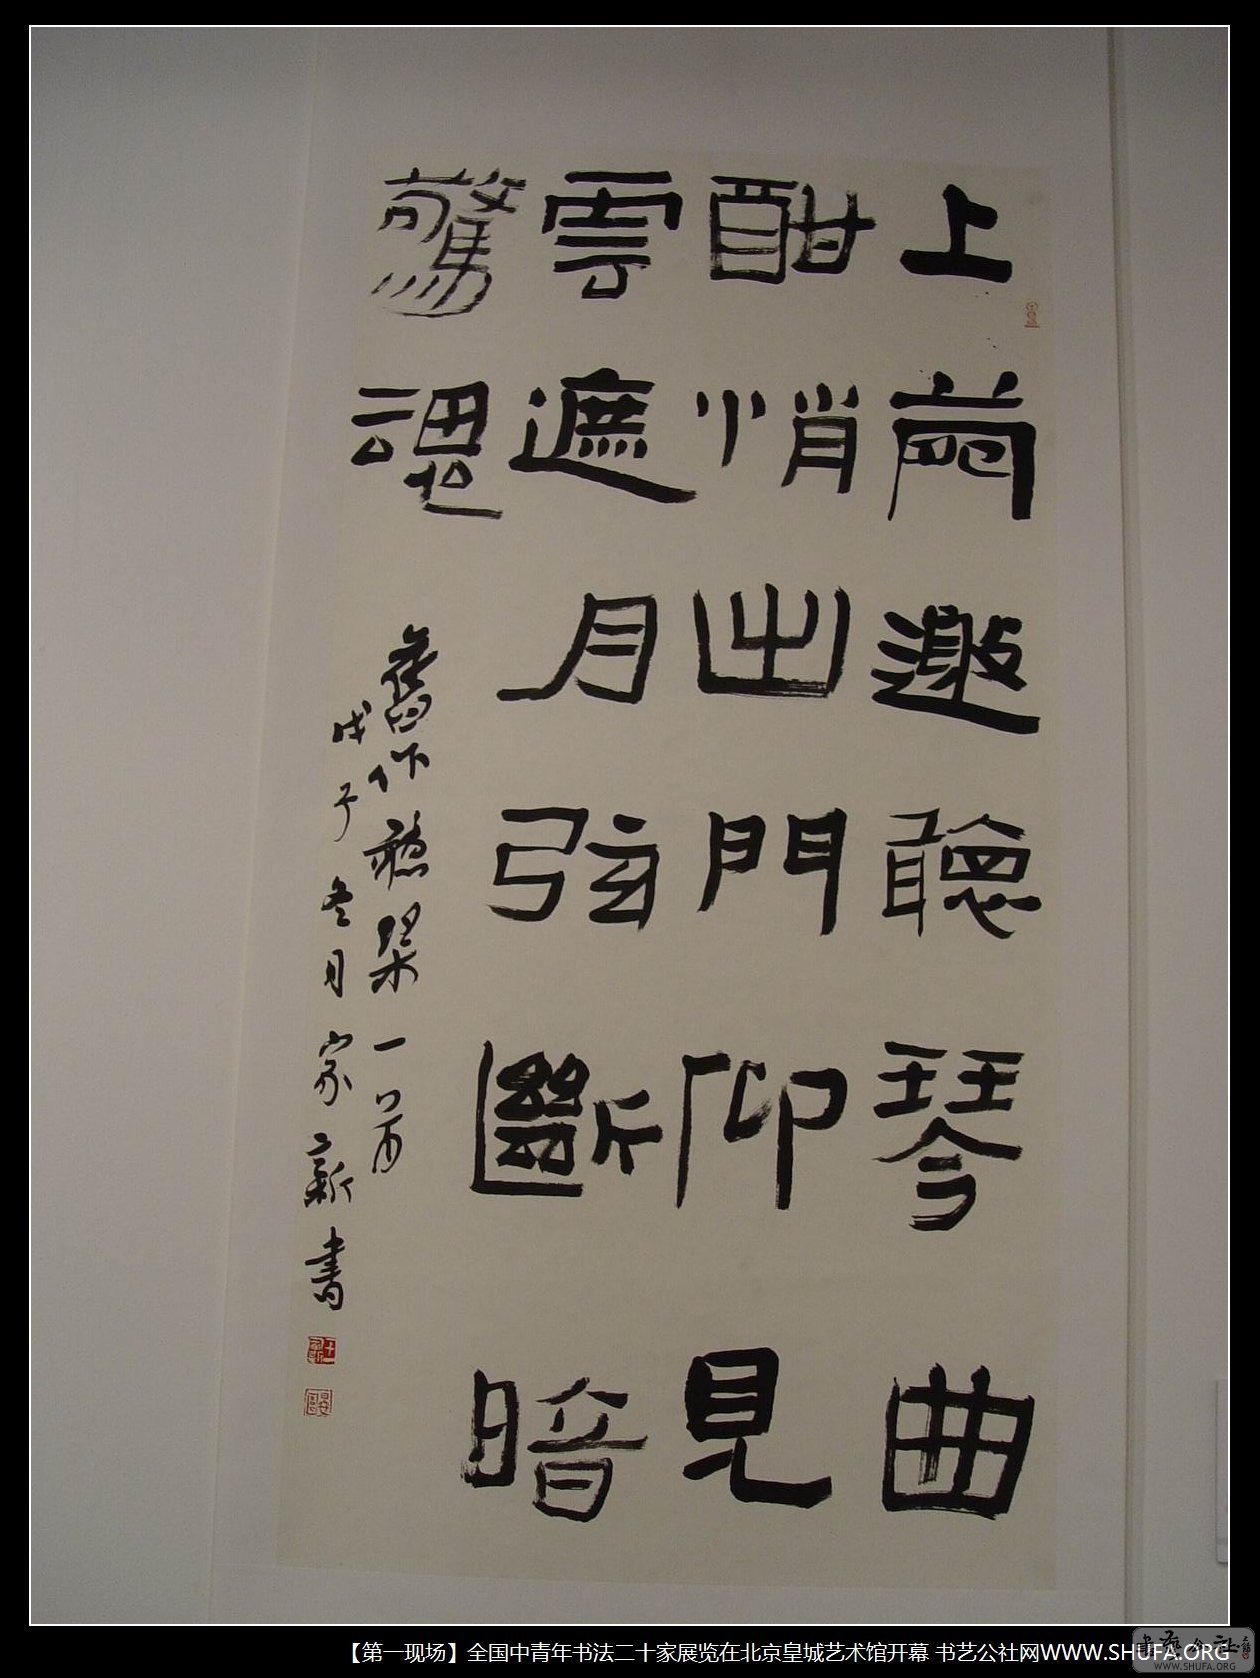 上苑邀聽琴曲
酣悄出門仰見
雲遮月弦斷暗
驚魂
舊作聽琴一首
戊子冬月家新書
【第一现场】全国中青年书法二十家展览在北京皇城艺术馆开幕 书艺公社网WWW.SHUFA.ORG
书艺公社
WWW.SHUFA.ORG